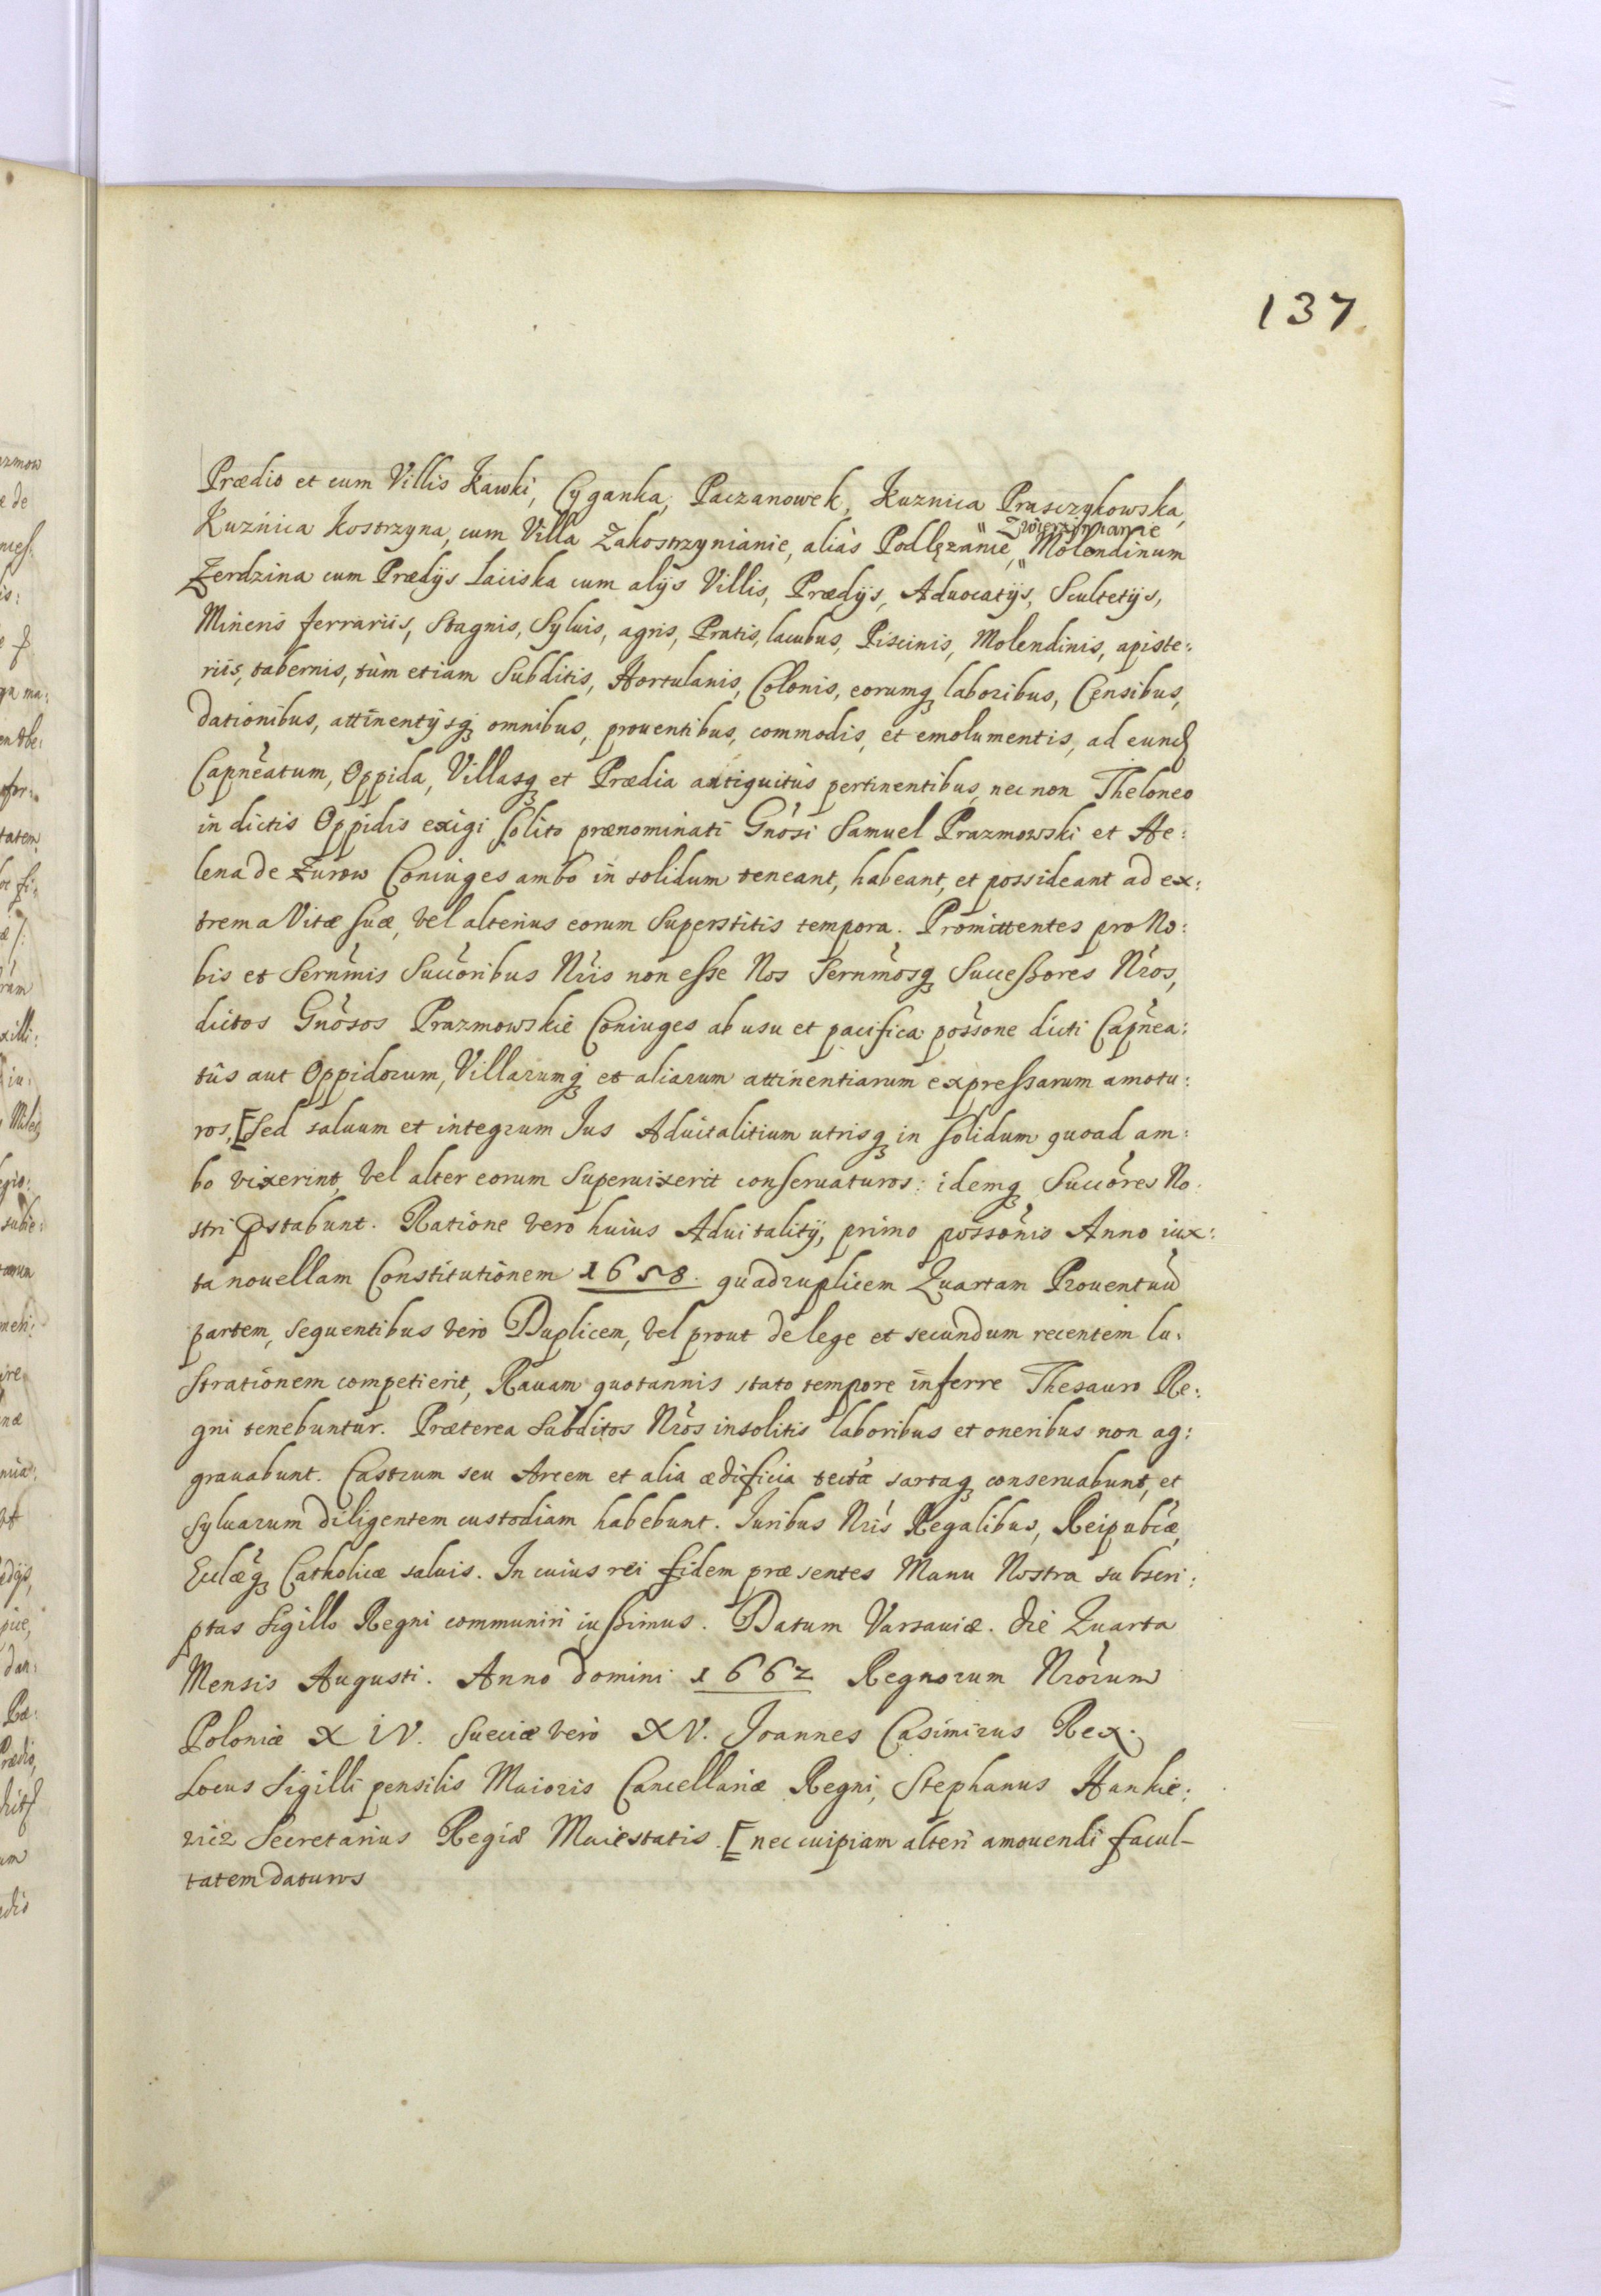 137
Prædio et cum Villis Kawki, Cyganka, Paczanowek, Kuznica Prasczykowska,
Kuźnica Kostrzyna, cum Villa Zakostrzynianie, aliàs Podlęzanie, " Zwierzynianie " Molendinum
Zerdzina cum Prædijs Laciska cum alijs Villis, Prædijs, Aduocatijs, Scultetijs,
Mineris ferrariis, Stagnis, Syluis, agris, Pratis, lacubus, Piscinis, Molendinis, apiste:
riis, tabernis, tùm etiam Subditis, Hortulanis, Colonis, eorumq; laboribus, Censibus,
dationibus, attinentijsq; omnibus, prouentibus, commodis, et emolumentis, ad eund
Capneatum, Oppida, Villasq; et Prædia antiquitùs pertinentibus, nec non Theloneo
in dictis Oppidis exigi solito prænominati Gnosi Samuel Prazmowski et He:
lena de Zurow Coniuges ambo in solidum teneant, habeant, et possideant ad ex:
trema Vitæ suæ, vel alterius eorum Superstitis tempora. Promittentes pro No:
bis et Sernmis Succoribus Nris non esse Nos Sernmosq; Successores Nros,
dictos Gnosos Prazmowskie Coniuges ab usu et pacifica possone dicti Capnea:
tûs aut Oppidorum, Villarumq; et aliarum attinentiarum expressarum amotu:
ros, [sed saluum et integrum Jus Aduitalitium utrisq; in solidum quoad am:
bo vixerint, vel alter eorum Superuixerit conseruaturos: idemq; Succores No:
stri pstabunt. Ratione vero huius Aduitalitij, primo possonis Anno iux:
ta nouellam Constitutionem 1658. quadruplicem Quartam Prouentuu
partem, sequentibus vero Duplicem, vel prout de lege et secundum recentem lu:
strationem competierit, Rauam quotannis stato tempore inferre Thesauro Re:
gni tenebuntur. Præterea Subditos Nros insolitis laboribus et oneribus non ag:
grauabunt. Castrum seu Arcem et alia ædificia tecta sartaq; conseruabunt, et
syluarum diligentem custodiam habebunt. Juribus Nris Regalibus, Reipubcæ,
Ecclæq; Catholicæ saluis. In cuius rei fidem præsentes Manu Nostra subscri:
ptas Sigillo Regni communiri iussimus. Datum Varsauiæ. die Quarta
Mensis Augusti. Anno domini 1662 Regnorum Nrorum
Poloniæ XIV. Sueciæ verò XV. Joannes Casimirus Rex.
Locus Sigilli pensilis Maioris Cancellariæ Regni, Stephanus Hankie:
wicz Secretarius Regiæ Maiestatis. [nec cuipiam alteri amouendi facul-
tatem daturos